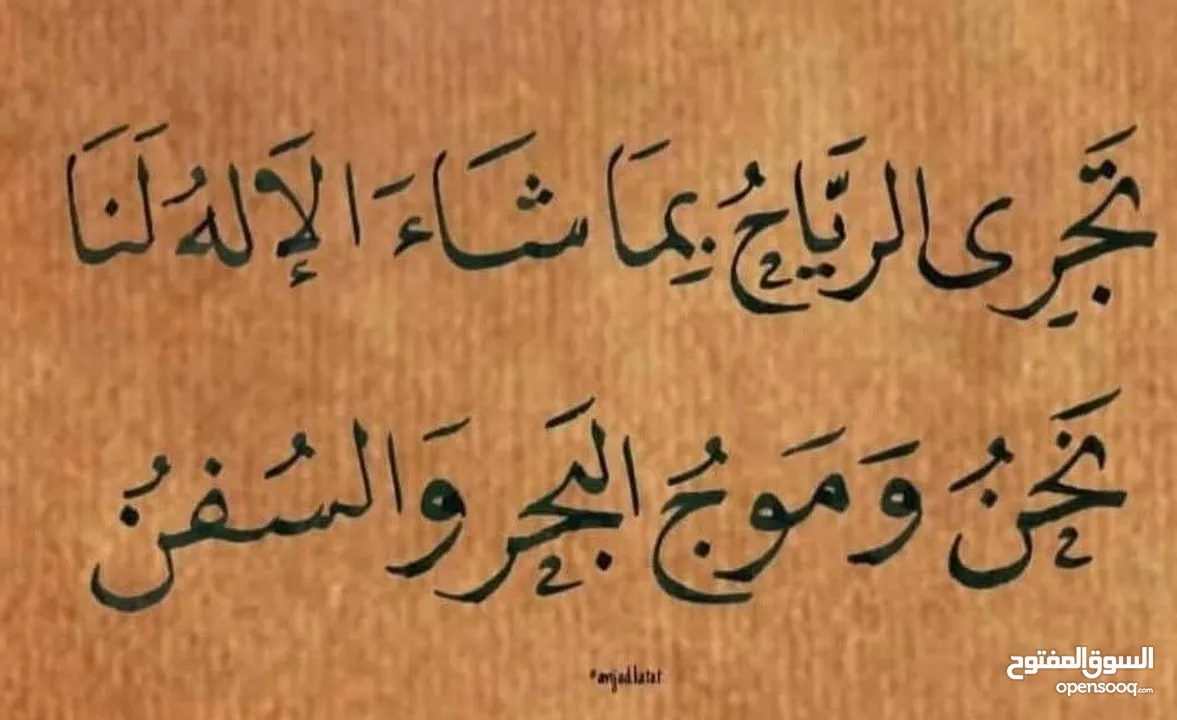 تَجرِى الريَّاحُ بِمَا شَاءَ الإَلهُ لَنَا
نَحنُ وَمَوجُ البَحرِ وَالسُفنُ
#amjadlatat
السوق المفتوح
opensooq.com